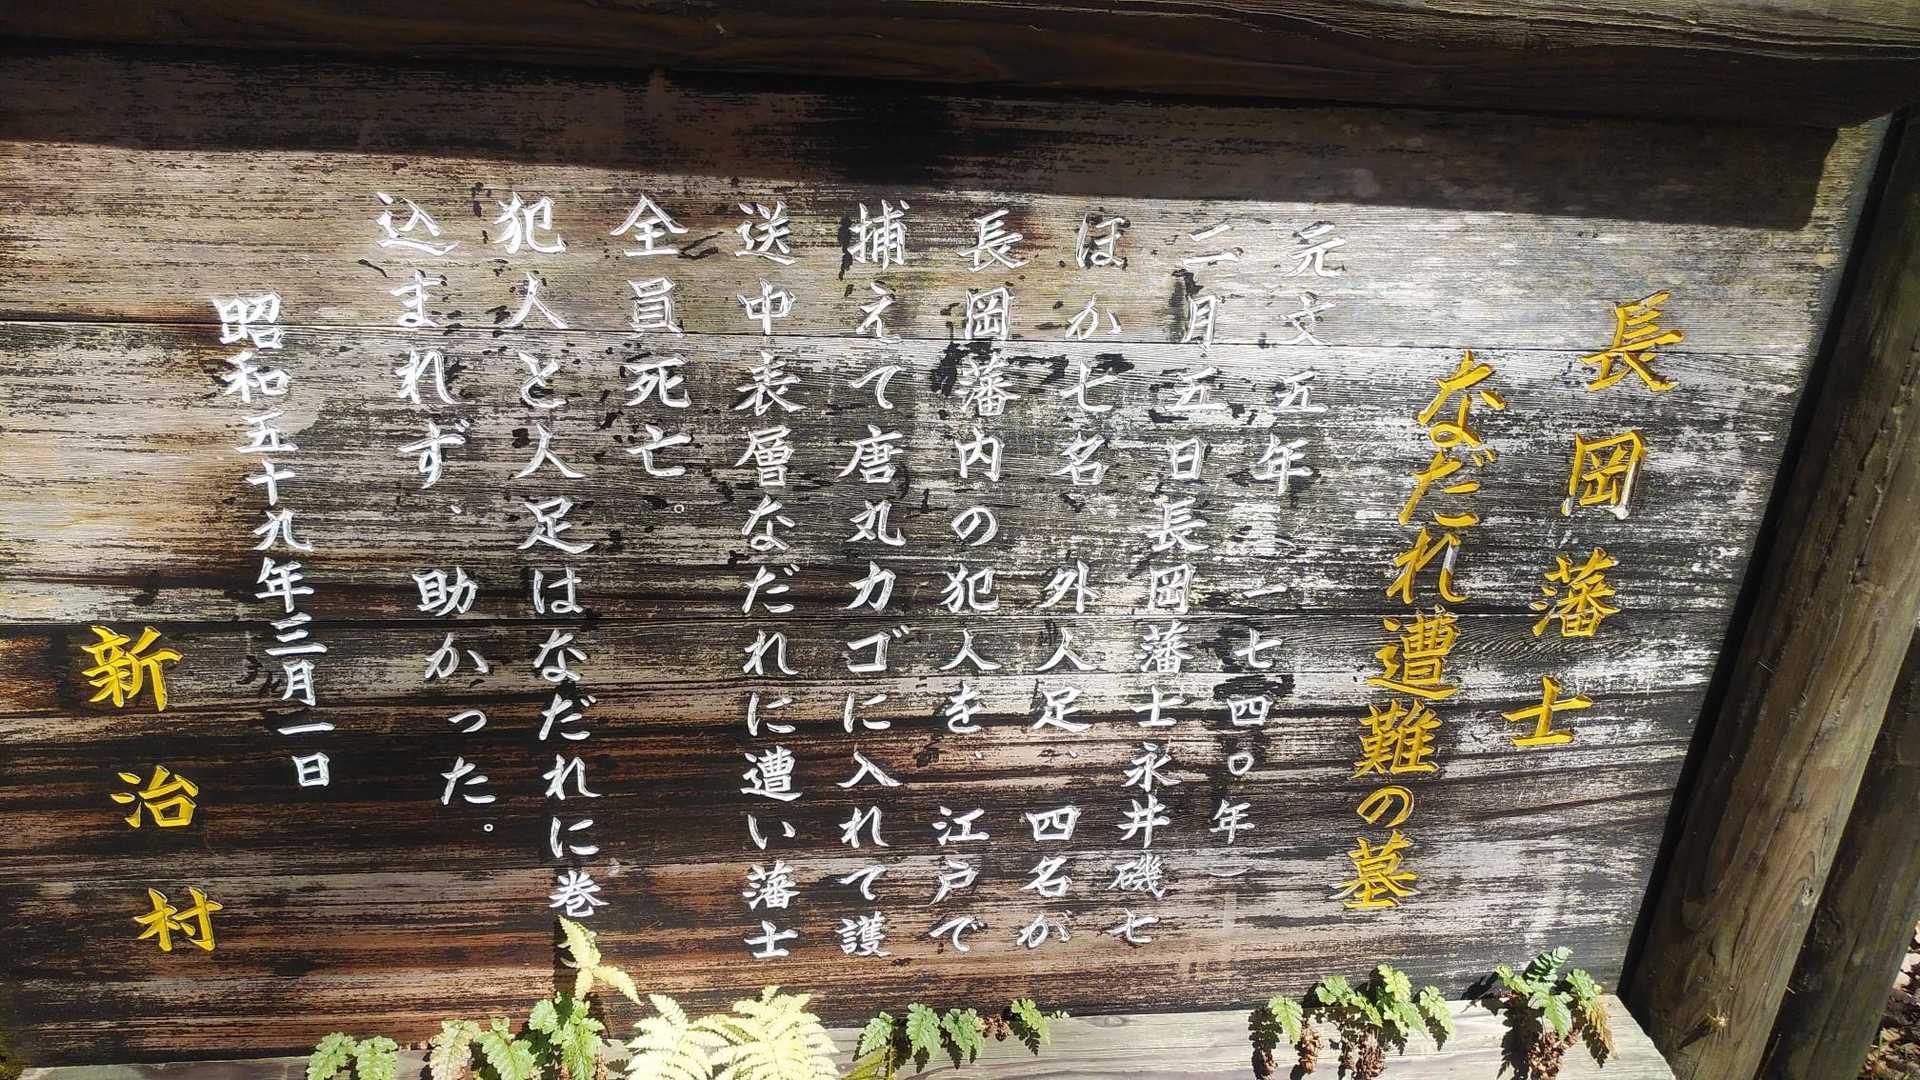 長岡藩士
なだれ遭難の墓
元文五年(一七四〇年)
二月五日長岡藩士永井磯七
ほか七名、外人足、四名が
長岡藩内の犯人を、江戸で
捕えて唐丸カゴに入れて護
送中表層なだれに遭い藩士
全員死亡。
犯人と人足はなだれに巻
込まれず、助かった。
昭和五十九年三月一日
新治村